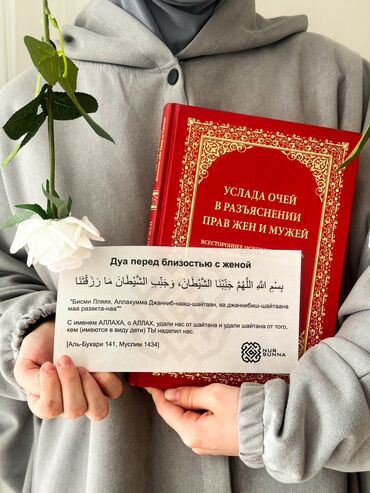 УСЛАДА ОЧЕЙ
В РАЗЪЯСНЕНИИ
ПРАВ ЖЕН И МУЖЕЙ
ВСЕСТОРОННЕЕ
Дуа перед близостью с женой
بِسْمِ اللهِ اللَّهُمَّ جَنِّبْنَا الشَّيْطَانَ، وَجَنِّبِ الشَّيْطَانَ مَا رَزَقْتَنَا
"Бисми Лляях, Аллахумма Джанниб-нааш-шайтаан, ва джаннибиш-шайтаана
маа разакта-наа""
С именем АЛЛАХА, о АЛЛАХ, удали нас от шайтана и удали шайтана от того,
кем (имеются в виду дети) ТЫ наделил нас.
[Аль-Бухари 141, Муслим 1434]
NUR
SUNNA